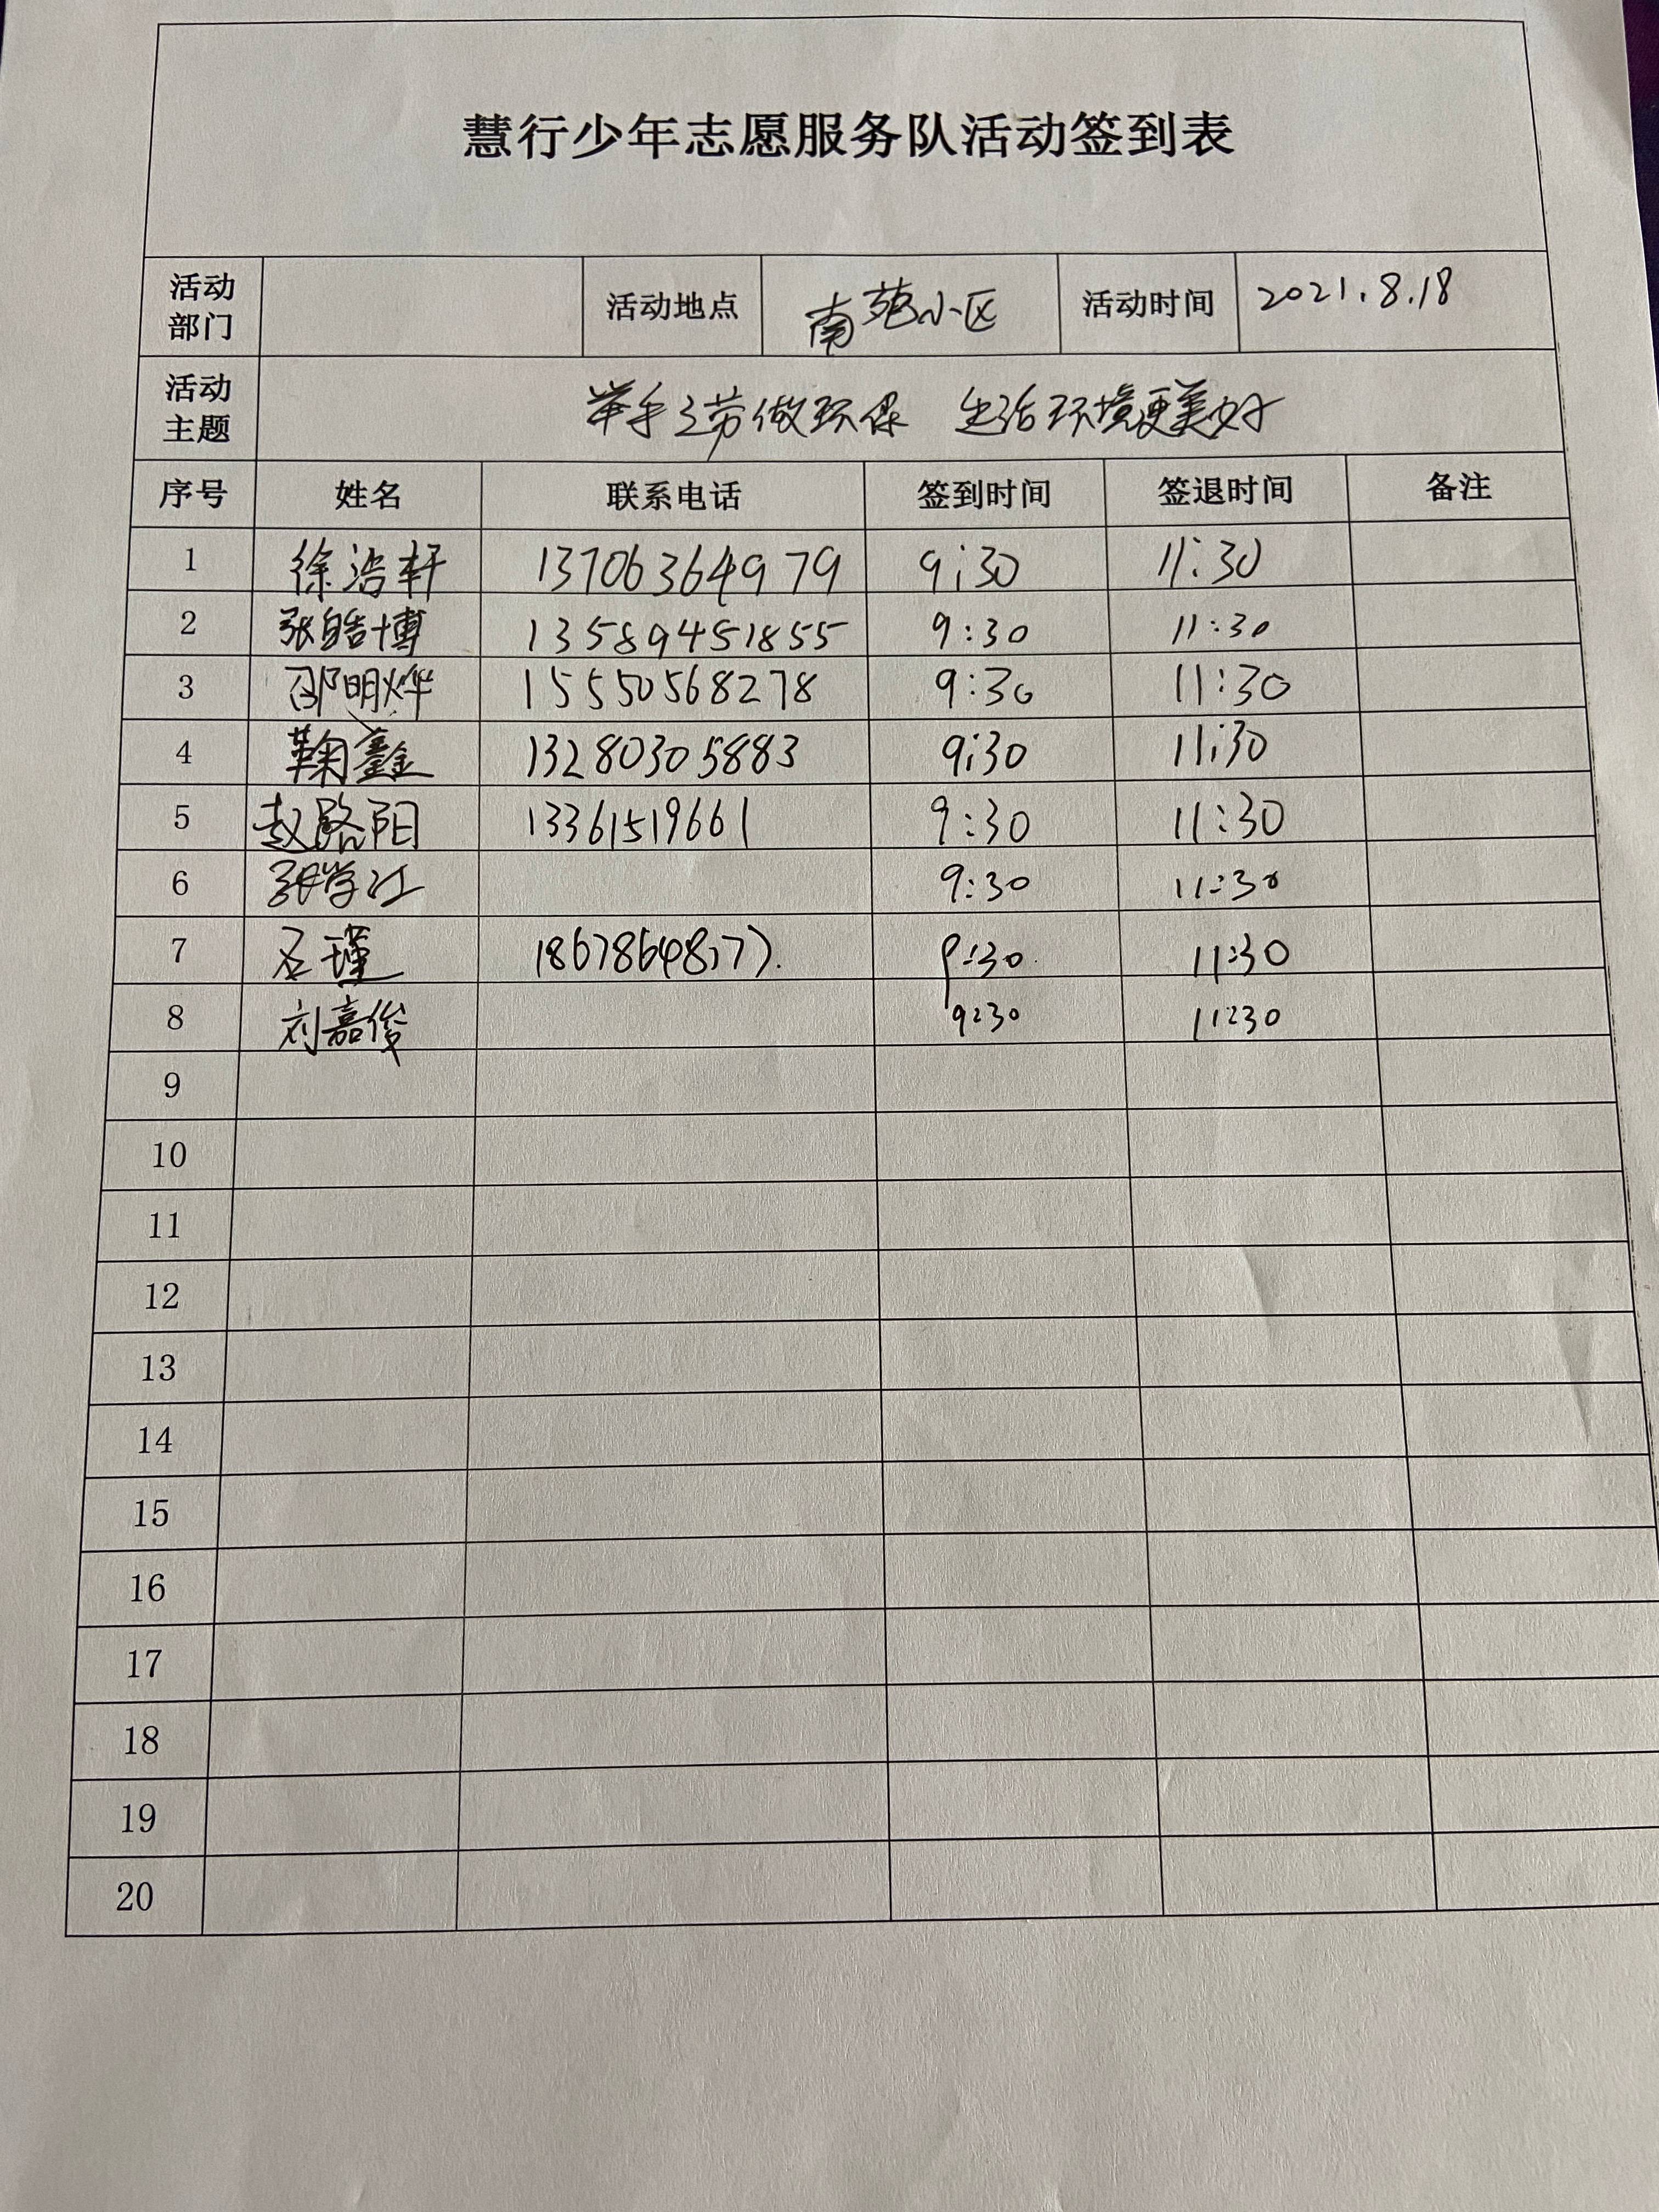 慧行少年志愿服务队活动签到表
活动部门 活动地点 南苑小区 活动时间 2021.8.18
活动主题 举手之劳做环保 生活环境更美好
序号 姓名 联系电话 签到时间 签退时间 备注
1 徐浩轩 13706364979 9:30 11:30
2 张皓博 13589451855 9:30 11:30
3 邵明烨 15550568278 9:30 11:30
4 鞠鑫 13280305883 9:30 11:30
5 赵路阳 13361519661 9:30 11:30
6 9:30 11:30
7 9:30 11:30
8 刘嘉俊 9:30 11:30
9
10
11
12
13
14
15
16
17
18
19
20